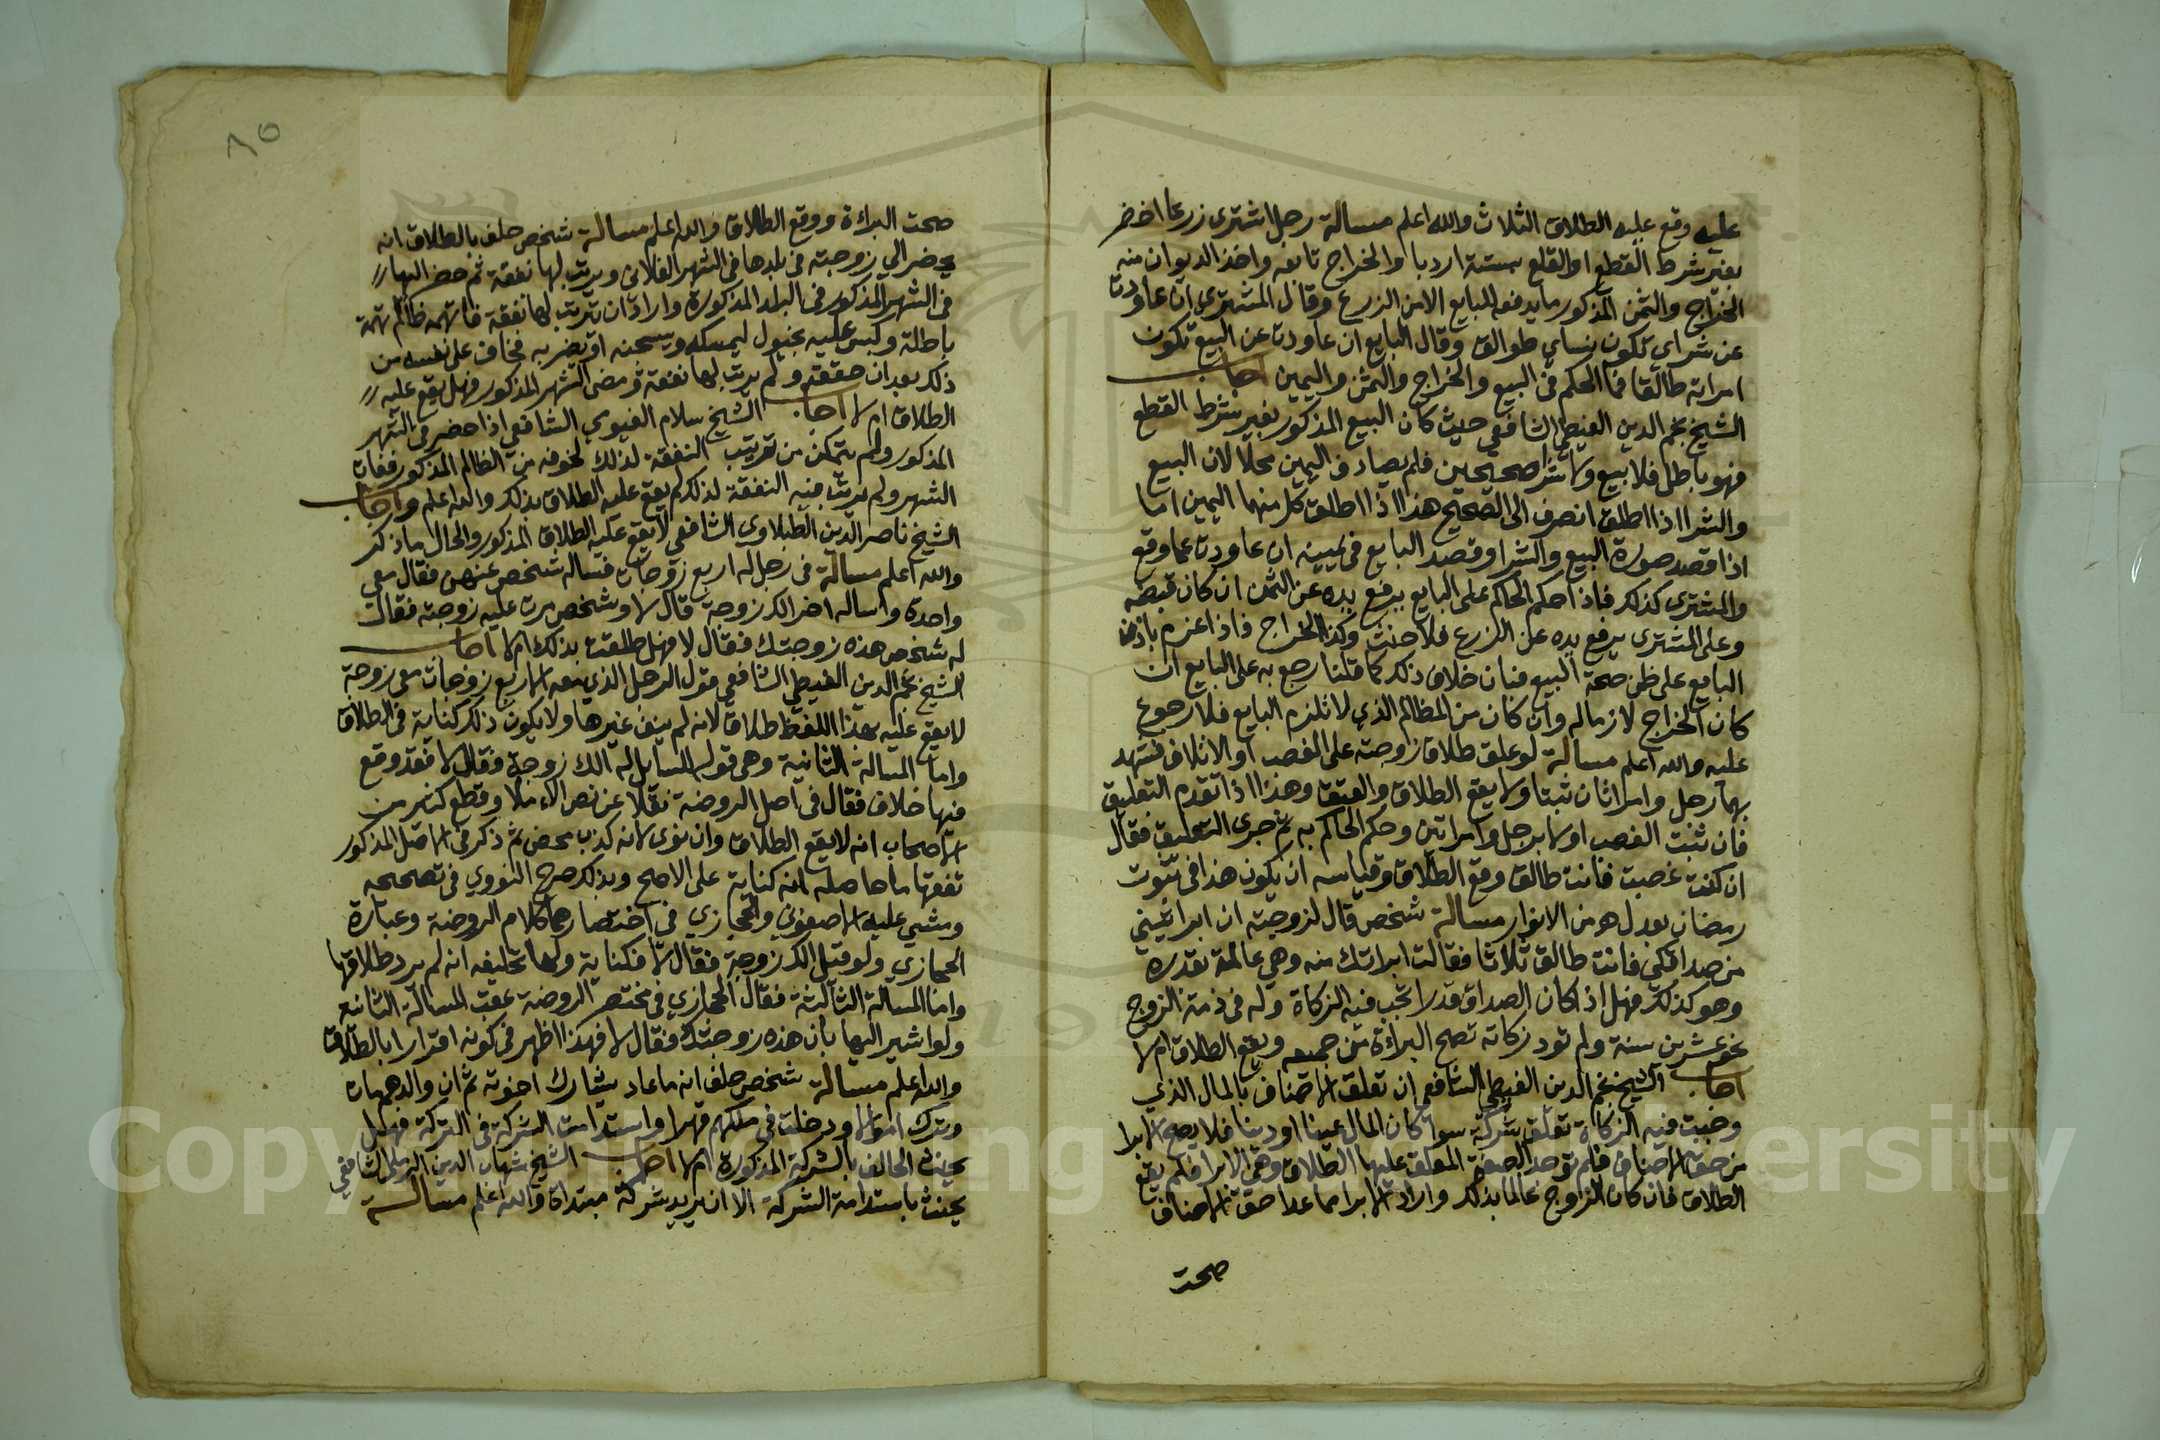 عليه وقع عليه الطلاق الثلاث والله اعلم مسالة رجل اشترى زرعا اخضر
بغير شرط القطع او القلع بستة اردبا والخراج تابعه واخذ الديوان منه
الخراج والثمن المذكور ما يدفعه للبايع الا من الزرع وقال المشتري ان عاودت
عن شراي تكون نساي طوالق وقال البايع ان عاودت عن البيع تكون
امراته طالقا فما الحكم في البيع والخراج والثمن واليمين اجاب
الشيخ نجم الدين الغيطي الشافعي حيث كان البيع المذكور بغير شرط القطع
فهو باطل فلا بيع ولا شرا صحيحين فلم يصادف اليمين محلا لان البيع
والشرا اذا اطلق انصرف الى الصحيح هذا اذا اطلق كل منهما اليمين اما
اذا قصد صورة البيع والشرا وقصد البايع في يمينه ان عاودت عما وقع
والمشتري كذلك فاذا حكم الحاكم على البايع برفع يده عن الثمن ان كان قبضه
وعلى المشتري يرفع يده عن الزرع فلا حنث وكذا الخراج فاذا غرم باذن
البايع على ظن صحة البيع فبان خلاف ذلك كما قلنا رجع به على البايع ان
كان الخراج لازما له وان كان من المظالم الذي لا تلزم البايع فلا رجوع
عليه والله اعلم مسالة لو علق طلاق زوجته على الغصب او الاتلاف فشهد
بهما رجل وامراتان ثبتا ولا يقع الطلاق والعتق وهذا اذا تقدم التعليق
فان ثبت الغصب اولا برجل وامراتين وحكم الحاكم به ثم جرى التعليق فقال
ان كنت غصبت فانت طالق وقع الطلاق وقياسه ان يكون هذا في ثبوت
رمضان بعدل هو من الانوار مسالة شخص قال لزوجته ان ابراتيني
من صداقكي فانت طالق ثلاثا فقالت ابراتك منه وهي عالمة بقدره
وهو كذلك فهل اذا كان الصداق قدرا تجب فيه الزكاة وله في ذمة الزوج
نحو عشرين سنة ولم تود زكاته تصح البراءة من جميعه ويقع الطلاق ام لا
اجاب الشيخ نجم الدين الغيطي الشافعي ان تعلق الاصناف بالمال الذي
وجبت فيه الزكاة تعلق شركة سوا كان المال عينا او دينا فلا يصح الابرا
من حق الاصناف فلم توجد الصفة المعلق عليها الطلاق وهي الابرا فلم يقع
الطلاق فان كان الزوج عالما بذلك واراد الابرا مما عدا حق الاصناف
صحت
٨٥
صحت البراءة ووقع الطلاق والله اعلم مسالة شخص حلف بالطلاق انه
يحضر الي زوجته في بلدها في الشهر الفلاني ويرتب لها نفقة ثم حضر اليها
في الشهر المذكور في البلد المذكورة واراد ان يرتب لها نفقة فاتهمه ظالم تهمة
باطلة وكبس عليه بخيول ليمسكه ويسجنه او يضربه فخاف على نفسه من
ذلك بعد ان حققه ولم يرتب لها نفقة ومضى الشهر المذكور فهل يقع عليه
الطلاق ام لا اجاب الشيخ سلام الفيومي الشافعي اذا حضر في الشهر
المذكور ولم يتمكن من ترتيب النفقة لذلك لخوفه من الظالم المذكور ففات
الشهر ولم يرتب فيه النفقة لذلك لم يقع عليه الطلاق بذلك والله اعلم واجاب
الشيخ ناصر الدين الطبلاوي الشافعي لا يقع عليه الطلاق المذكور والحال ما ذكر
والله اعلم مسالة في رجل له اربع زوجات فساله شخص عنهن فقال معي
واحدة وساله اخر الك زوجة قال لا وشخص مرت عليه زوجته فقال
له شخص هذه زوجتك فقال لا فهل طلقت بذلك ام لا اجاب
الشيخ نجم الدين الغيطي الشافعي قول الرجل الذي معه الاربع زوجات معي زوجة
لا يقع عليه بهذا اللفظ طلاق لانه لم ينف غيرها ولا يكون ذلك كناية في الطلاق
واما المسالة الثانية وهي قول السايل له الك زوجة فقال لا فقد وقع
فيها خلاف فقال في اصل الروضة نقلا عن نص الاملا وقطع كثير من
الاصحاب انه لا يقع الطلاق وان نوى لانه كذب محض ثم ذكر في الاصل المذكور
تفقها ما حاصله انه كناية على الاصح وبذلك صرح النووي في تصحيحه
ومشي عليه الاصفوني والحجازي في اختصارهما كلام الروضة وعبارة
الحجازي ولو قيل الك زوجة فقال لا فكناية ولها تحليفه انه لم يرد طلاقها
واما المسالة الثالثة فقال الحجازي في مختصر الروضة عقب المسالة الثانية
ولو اشير اليها بان هذه زوجتك فقال لا فهذا اظهر في كونه اقرارا بالطلاق
والله اعلم مسالة شخص حلف انه ما عاد يشارك اخوته ثم ان والدهم مات
وترك اموالا ودخلت في ملكهم قهرا واستدامت الشركة في التركة فهل
يحنث الحالف بالشركة المذكورة ام لا اجاب الشيخ شهاب الدين الرملي الشافعي
يحنث باستدامة الشركة الا ان يريد شركة مبتداة والله اعلم مسالة